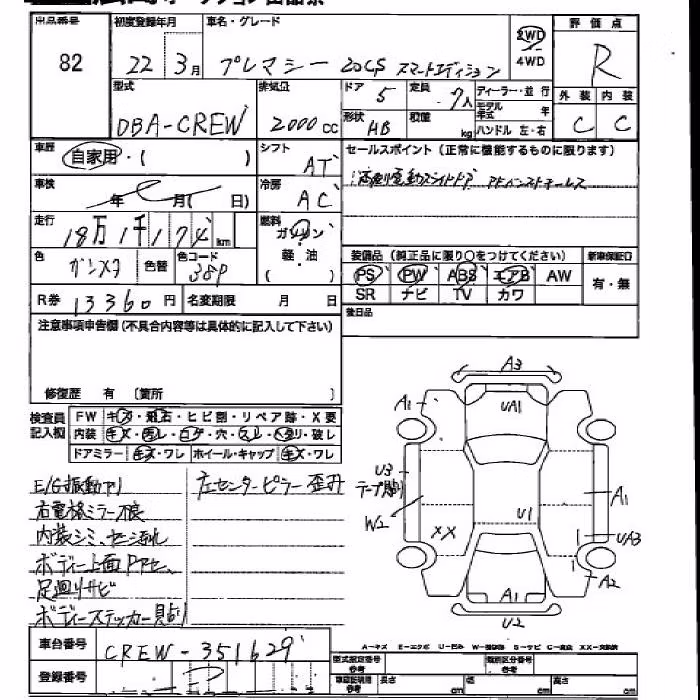 出品番号
82
初度登録年月
22年 3月
車名・グレード
プレマシー 20CS スマートエディション
2WD
4WD
評価点
R
型式
DBA-CREW
排気量
2000cc
ドア
5
定員
7人
形状
HB
積載
kg
ディーラー・並行
モデル年式 年
ハンドル 左・右
外装 内装
C C
車歴
自家用・( )
シフト
AT
セールスポイント(正常に機能するものに限ります)
両側電動スライドドア
車検
年 月( 日)
冷房
AC
走行
18万1千174km
燃料
ガソリン
軽・油
( )
色
ガンメタ
色替
色コード
38P
装備品(純正品に限り○をつけてください)
新車保証口
PS PW ABS エアB AW
有・無
SR ナビ TV カワ
R券 13360円
名変期限 月 日
後日品
注意事項申告欄(不具合内容等は具体的に記入して下さい)
修復歴 有 〔箇所 〕
検査員記入欄
FW キズ・飛石・ヒビ割・リペア跡・X要
内装 キズ・汚レ・コゲ・穴・スレ・ヘタリ・破レ
ドアミラー キズ・ワレ ホイール・キャップ キズ・ワレ
E/G振動アリ
左センターピラー歪み
右電格ミラー不良
内装シミ、セーム汚れ
ボディー上面
足廻りサビ
ボディーステッカー見切り
A3
A1
UA1
U3
テープ貼り
W2
XX
U1
A1
UA3
A2
A1
U2
A=キズ E=エクボ U=凹み W=補修跡 S=サビ C=腐食 XX=交換済
車台番号
CREW-351629
登録番号
型式指定番号 参考
類別区分番号 参考
車庫証明用 参考
長さ cm
幅 cm
高さ cm